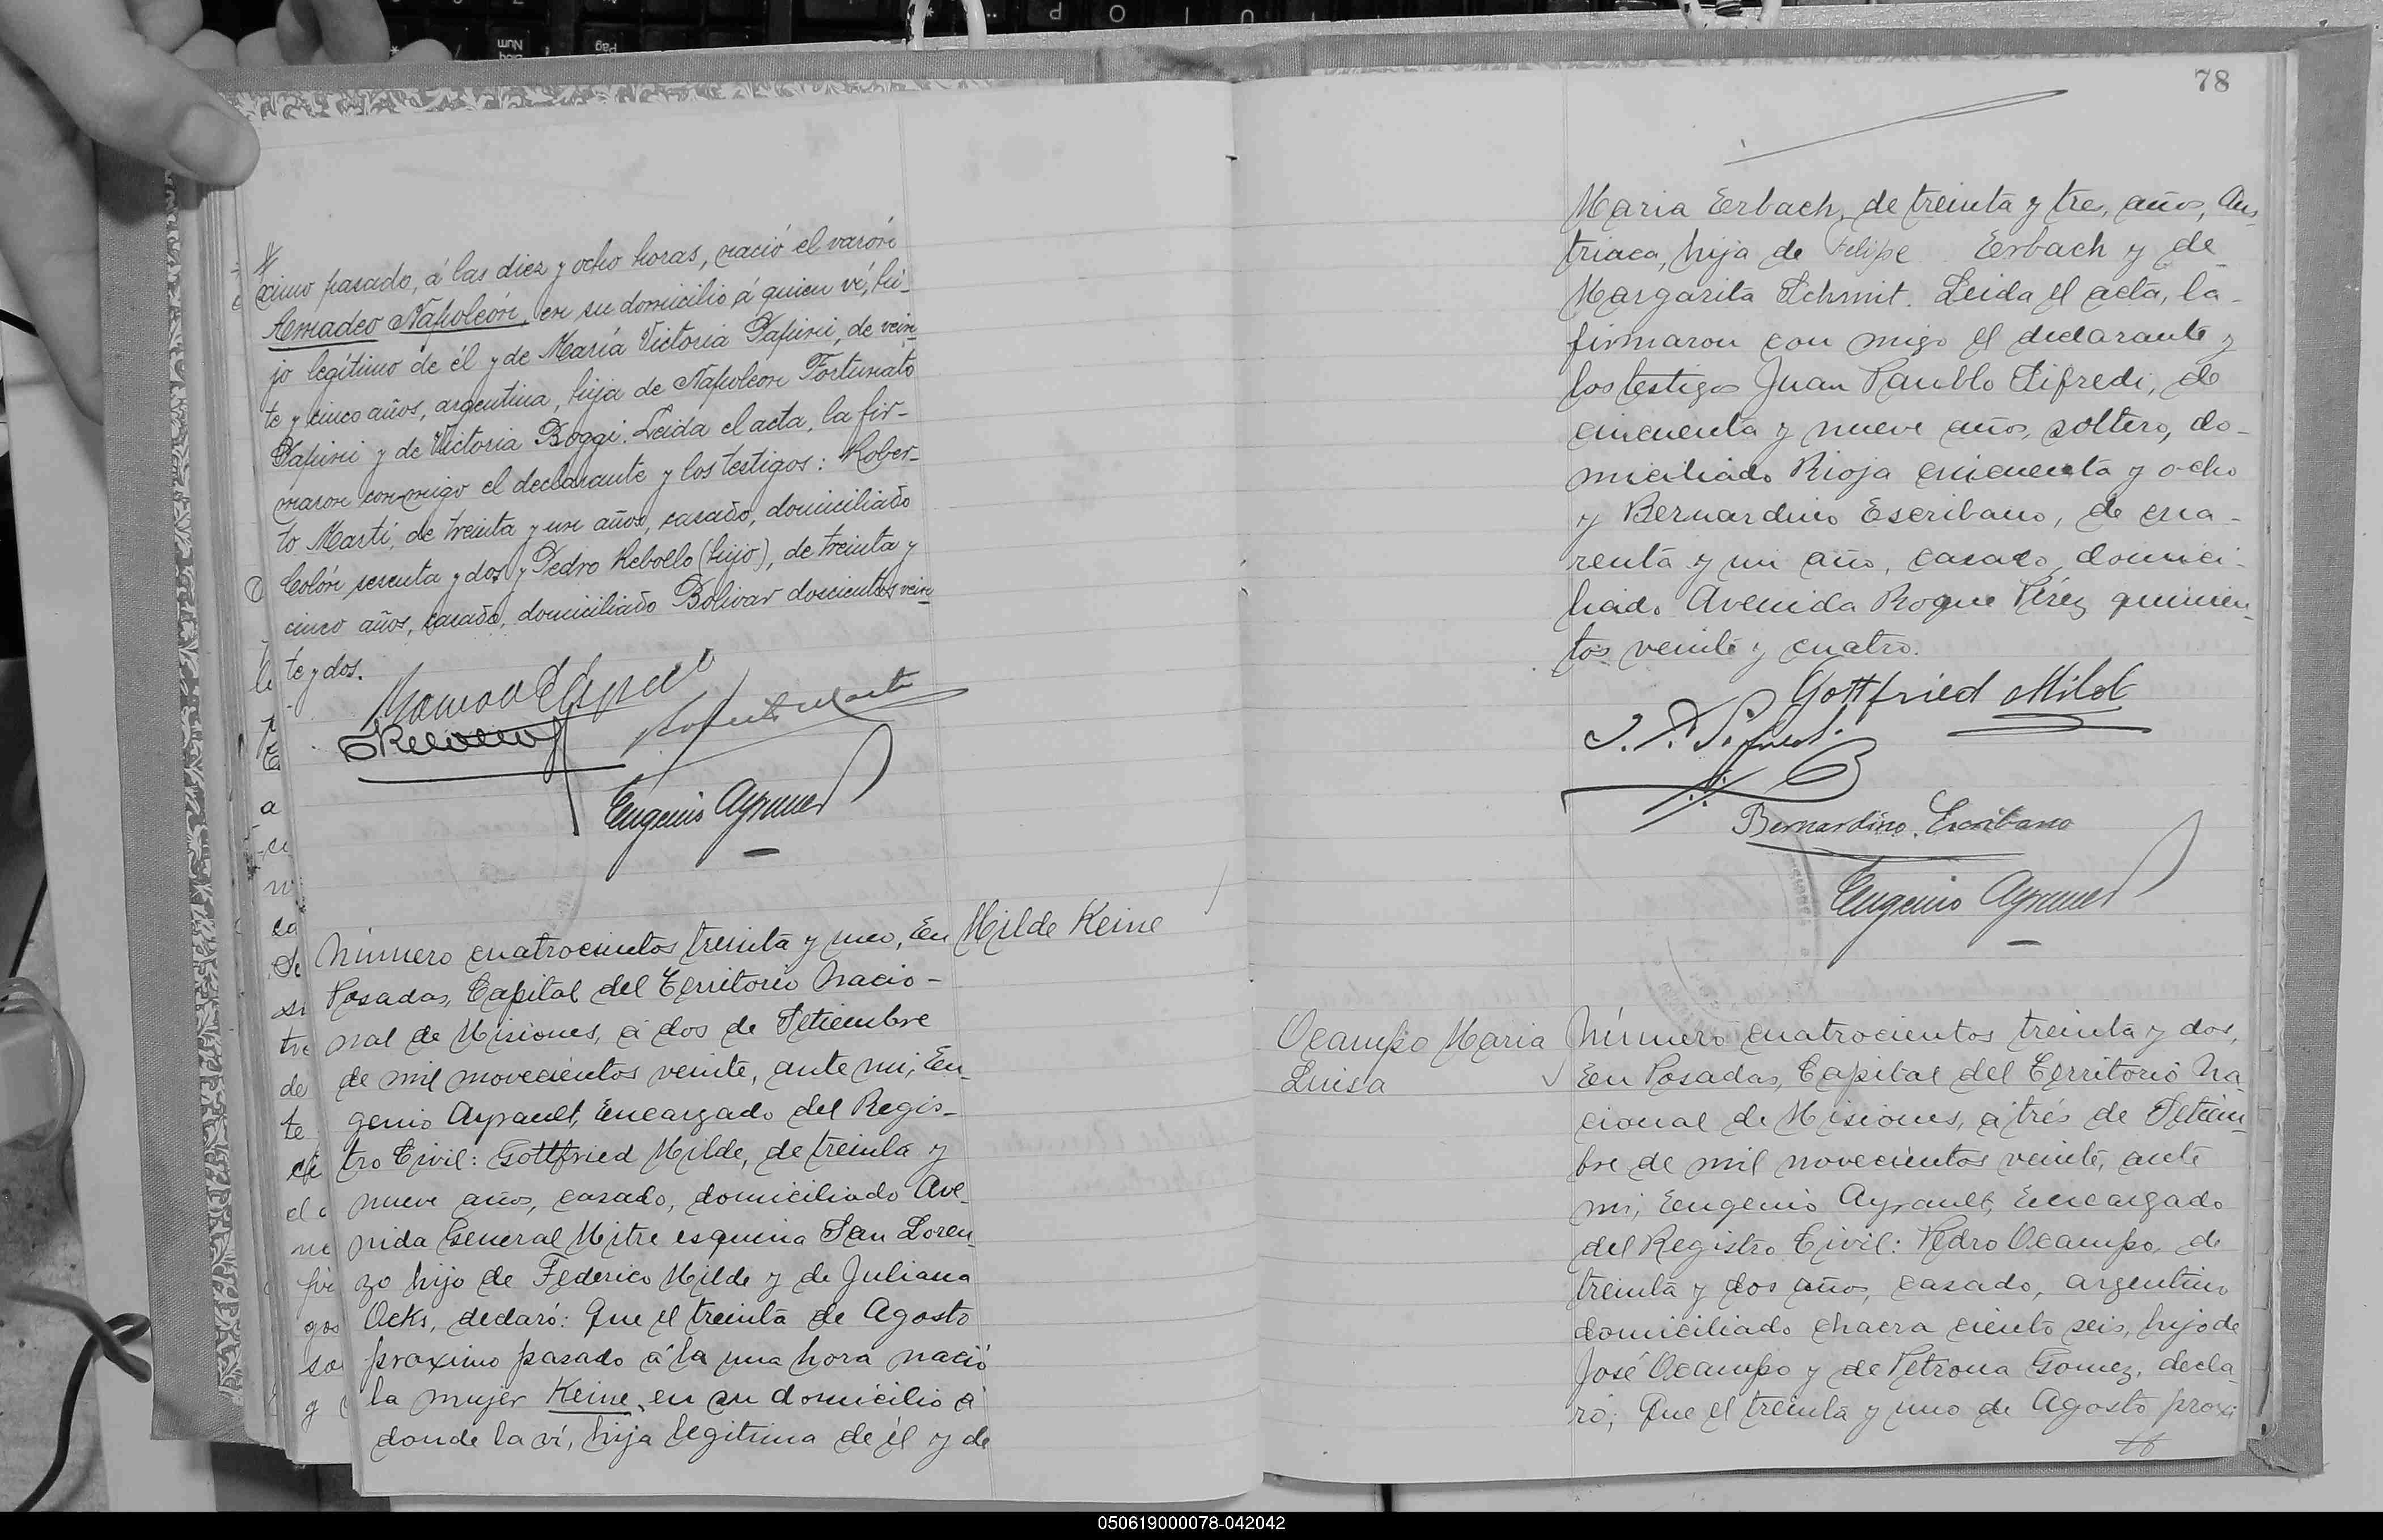 ximo pasado, á las diez y ocho horas, nació el varón
Amadeo Napoleón, en su domicilio á quien vé, hi-
jo legítimo de él y de María Victoria Papini, de vein-
te y cinco años, argentina, hija de Napoleon Fortunato
Papini y de Victoria Boggi. Leida el acta, la fir-
maron con migo el declarante y los testigos: Rober-
to Martí, de treinta y un años, casado, domiciliado
Colón sesenta y dos y Pedro Rebollo (hijo), de treinta y
cinco años, casado, domiciliado Bolivar doscientos vein-
te y dos.
Eugenio Ayrault
Milde Keine
Número cuatrocientos treinta y uno, En
Posadas, Capital del Territorio Nacio-
nal de Misiones, á dos de Setiembre
de mil novecientos veinte, ante mi, Eu-
genio Ayrault, Encargado del Regis-
tro Civil: Gottfried Milde, de treinta y
nueve años, casado, domiciliado Ave-
nida General Mitre esquina San Loren-
zo hijo de Federico Milde y de Juliana
Ocks, declaró: Que el treinta de Agosto
proximo pasado á la una hora nació
la mujer Keine, en su domicilio á
donde la ví, hija legitima de él y de
78
Maria Erbach, de treinta y tres, años, Aus
triaca, hija de Felipe Erbach y de
Margarita Schmit. Leida el acta, la
firmaron con migo el declarante y
los testigos Juan Paublo Sifredi, de
cincuenta y nueve años, soltero, do-
miciliado Rioja cincuenta y ocho
y Bernardino Escribano, de cua-
renta y un año, casado, domici-
liado Avenida Roque Pérez quinien-
tos veinte y cuatro.
Gottfried Milde
Bernardino Escribano
Eugenio Ayrault
Ocampo Maria
Luisa
Número cuatrocientos treinta y dos,
En Posadas, Capital del Territorio Na
cional de Misiones, á tres de Setiem-
bre de mil novecientos veinte, ante
mi, Eugenio Ayrault, Encargado
del Registro Civil: Pedro Ocampo, de
treinta y dos años, casado, argentino
domiciliado chacra ciento seis, hijo de
José Ocampo y de Petrona Gomez, decla-
ró; Que el treinta y uno de Agosto proxi
050619000078-042042